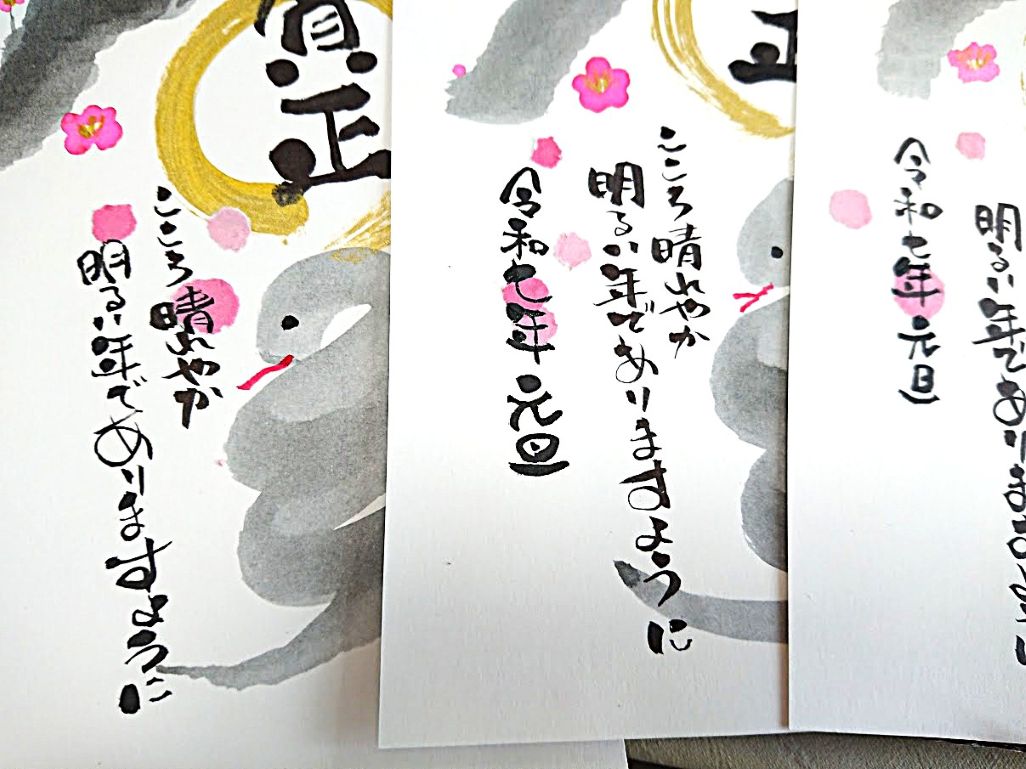 賀正
こころ晴れやか
明るい年でありますように
正
こころ晴れやか
明るい年でありますように
令和七年 元旦
明るい年でありますように
令和七年 元旦